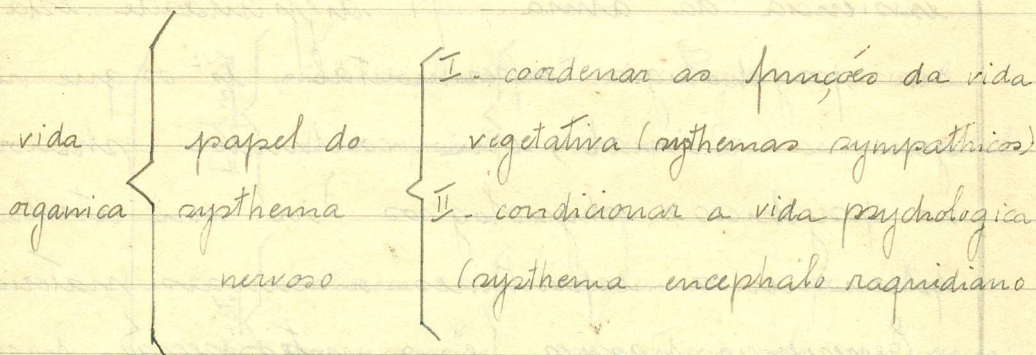 vida
organica
papel do
systhema
nervoso
I - coordenar as funções da vida
vegetativa (systhemas sympathicos)
II - condicionar a vida psychologica
(systhema encephalo raquidiano